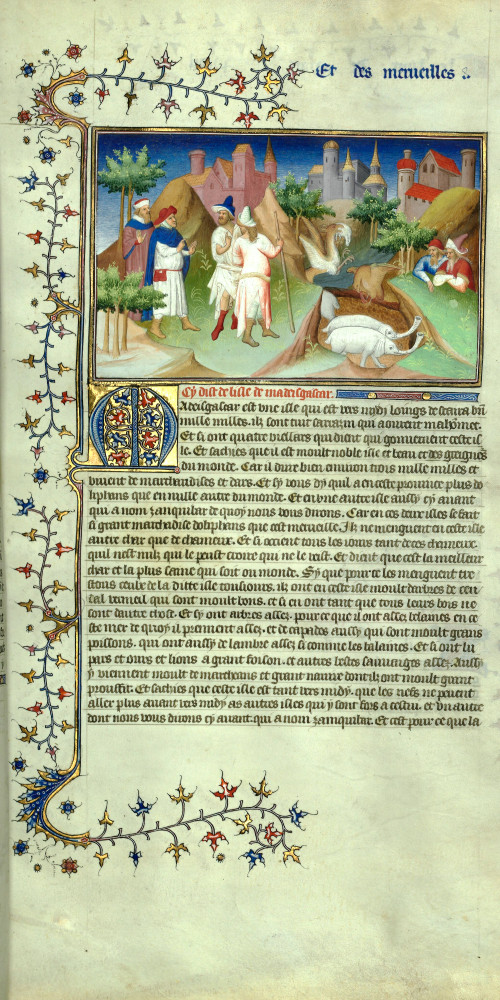 Et des merueilles
Cy dist de lisle de madeisgascar.
Madeisgascar est vne isle qui est vers mydy loings de scaira bn
mille milles. ilz sont tuit sarrazin qui aourent mahommet.
Et si ont quatre viellars qui dient qui gouuernent ceste is
le. Et sachies que il est moult noble isle et beau et des greigneurs
du monde. Car il dure bien enuiron trois mille milles et
viuent de marchandises et dars. Et sy vous dy quil a en ceste prouince plus do
liphans que en nulle autre du monde. Et en vne autre isle aussy cy auant
qui a nom zanquibar de quoy nous vous dirons. Car en ces deux isles se fait
si grant marchandise doliphans que cest merueille. Ilz ne menguent en ceste isle
autre char que de chameux. Et si occient tous les iours tant de ces chameux.
quil nest nulz qui le peust croire qui ne le veist. Et dient que cest la meilleur
char et la plus saine qui soit ou monde. Sy que pour ce les menguent tre
stous ceulx de la ditte isle tousiours. ilz ont en ceste isle moult darbres de cen
dal vermeil qui sont moult bons. et si en ont tant que tous leurs bois ne
sont dautre chose. Et sy ont ambres assez. pour ce que il ont assez balaines en ce
ste mer de quoy il prennent assez. et de capados aussy qui sont moult grans
poissons. qui ont aussy de lambre assez si comme les balaines. Et si ont lu
pars et ours et lions a grant foison. et autres bestes sauuaiges assez. Aussy
y viennent moult de marcheans et grant nauire dont ilz ont moult grant
prouffit. Et sachies que ceste isle est tant vers midy. que les nefs ne peuent
aller plus auant vers midy as autres isles qui y sont fors a cestui. et vn autre
dont nous vous dirons cy auant. qui a nom zanquibar. Et cest pour ce que la